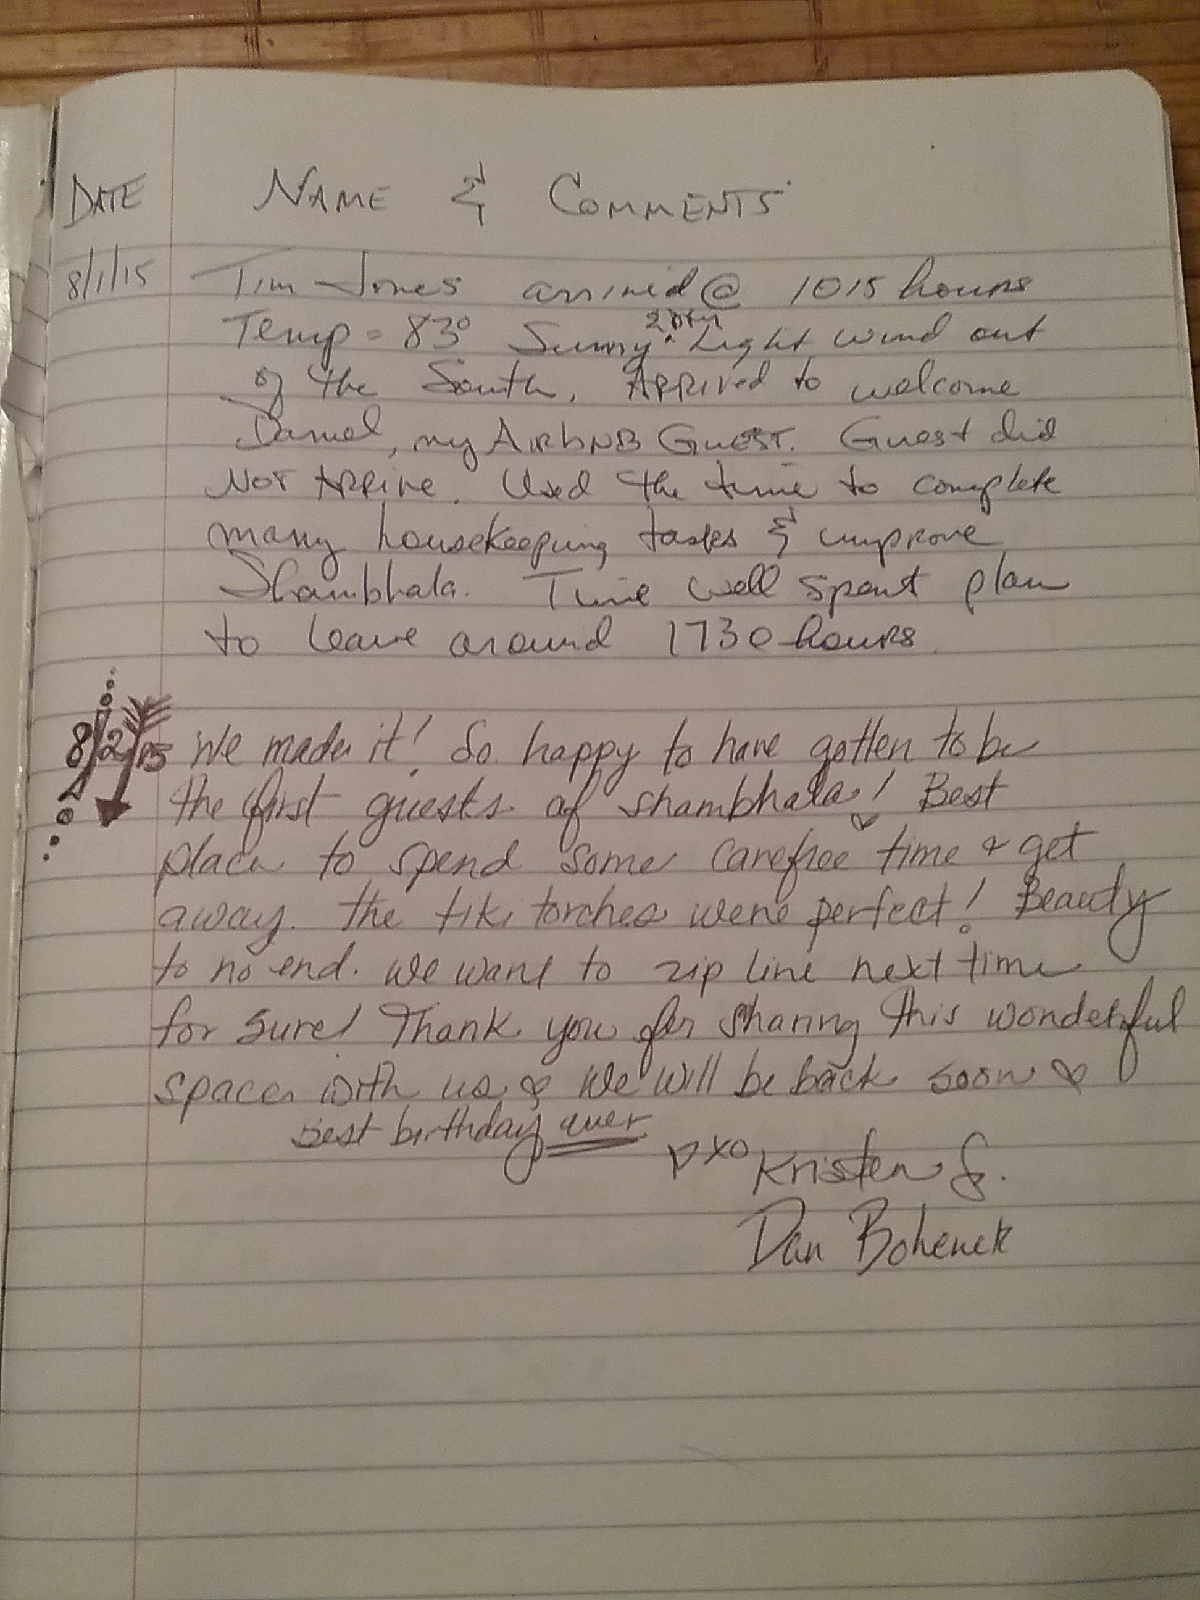 DATE NAME & COMMENTS
8/1/15 Tim Jones arrived @ 1015 hours
Temp = 83° Sunny. Light wind out
of the South. Arrived to welcome
Daniel, my AirbNB Guest. Guest did
Not Arrive. Used the time to complete
many housekeeping tasks & improve
Shambhala. Time well spent plan
to leave around 1730 hours.
8/2/15 We made it! So happy to have gotten to be
the first guests of shambhala! Best
place to spend some carefree time & get
away. The tiki torches were perfect! Beauty
to no end. We want to zip line next time
for sure! Thank you for sharing this wonderful
space with us ♡ We will be back soon ♡
Best birthday ever
XO Kristen
Dan Bohenek